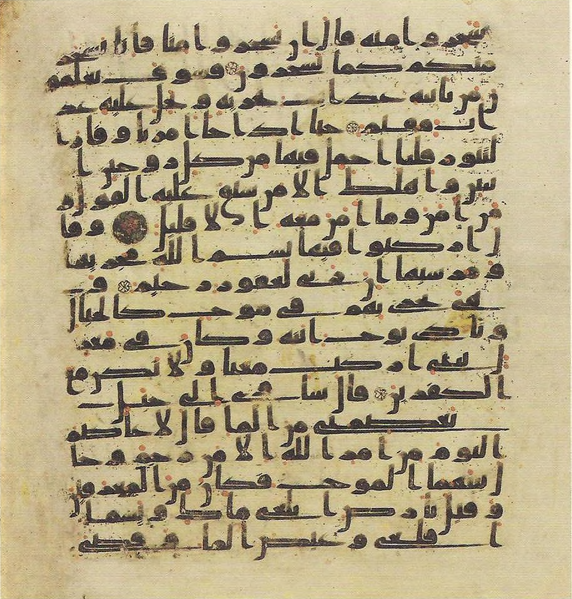 سخروا منه قال ان تسخروا منا فانا نسخر
منكم كما تسخرون فسوف تعلمو
ن من ياتيه عذاب يخزيه ويحل عليه عذ
اب مقيم حتى اذا جا امرنا وفار ا
لتنور قلنا احمل فيها من كل زوجين ا
ثنين واهلك الا من سبق عليه القول و
من امن وما امن معه الا قليل وقا
ل اركبوا فيها بسم الله مجريها
ومرسيها ان ربي لغفور رحيم و
هي تجري بهم في موج كالجبال
ونادى نوح ابنه وكان في معز
ل يبني اركب معنا ولا تكن مع
الكفرين قال ساوي الى جبل
يعصمني من الما قال لا عاصم
اليوم من امر الله الا من رحم وحا
ل بينهما الموج فكان من المغرقين
وقيل يارض ابلعي ماك ويسما
اقلعي وغيض الما وقضي